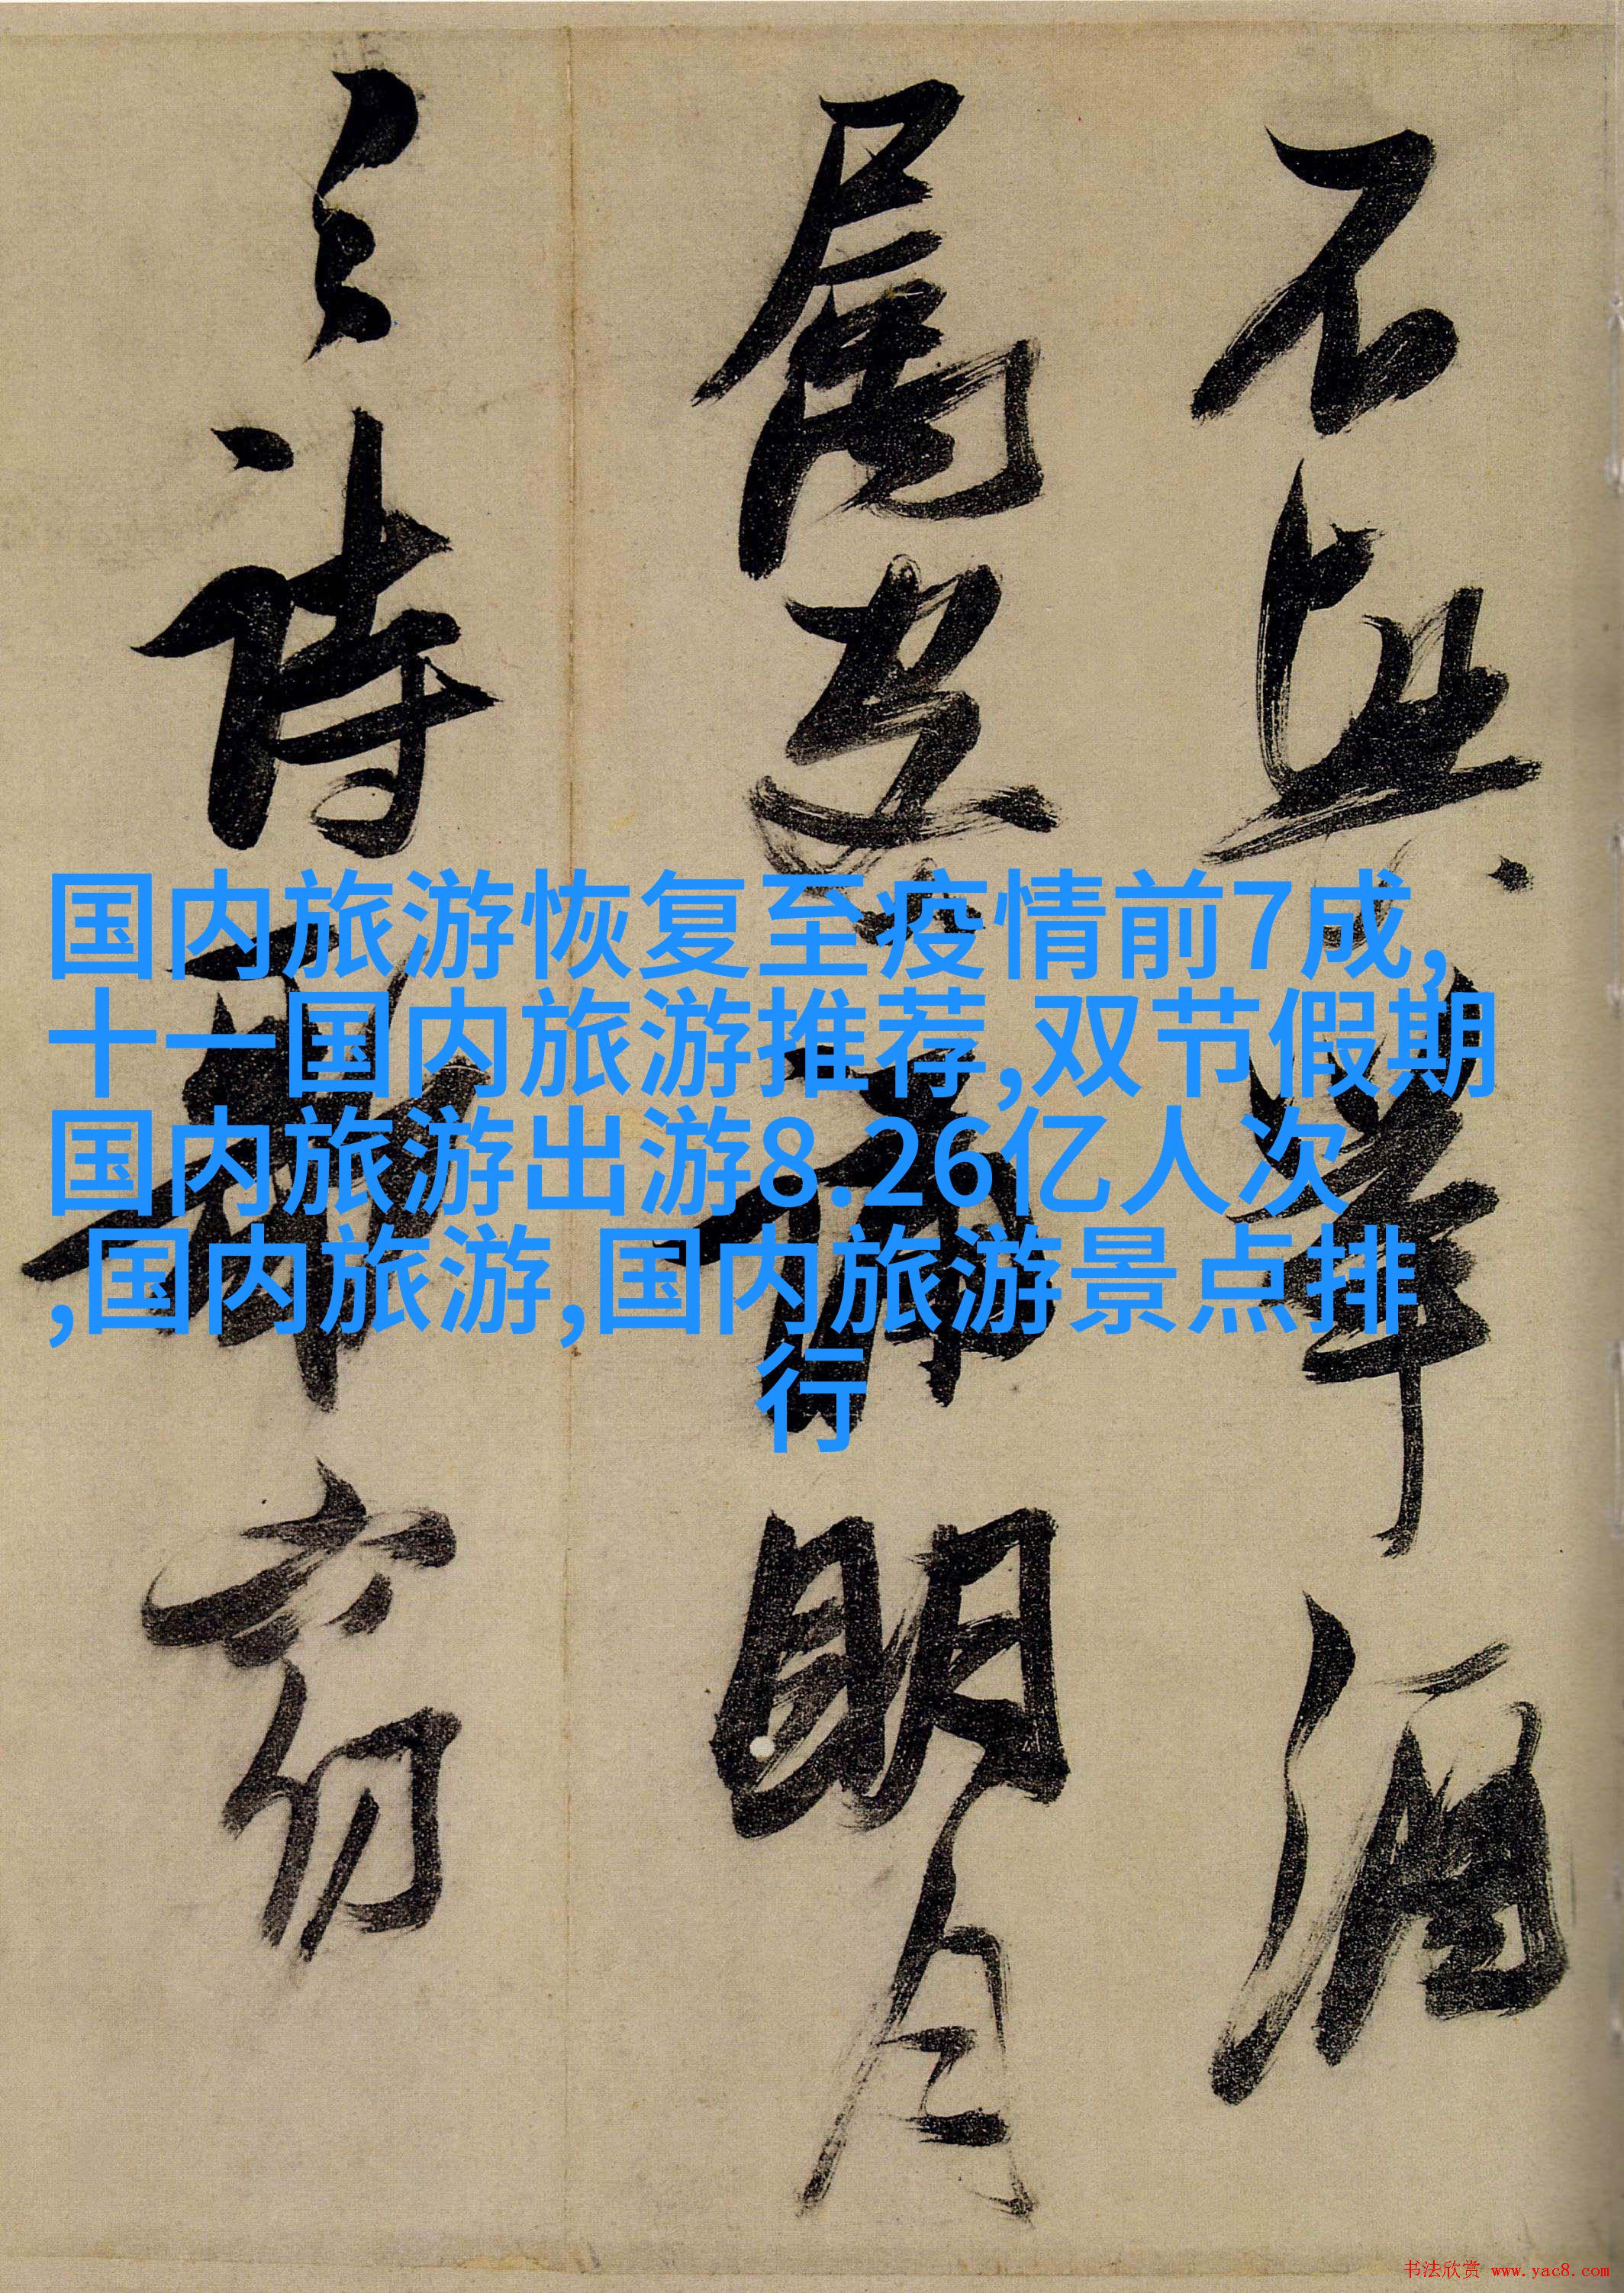 不興舉酒
屬客誦明月
之詩歌窈
国内旅游恢复至疫情前7成,
十一国内旅游推荐,双节假期
国内旅游出游8.26亿人次
,国内旅游,国内旅游景点排
行
书法欣赏 www.yac8.com